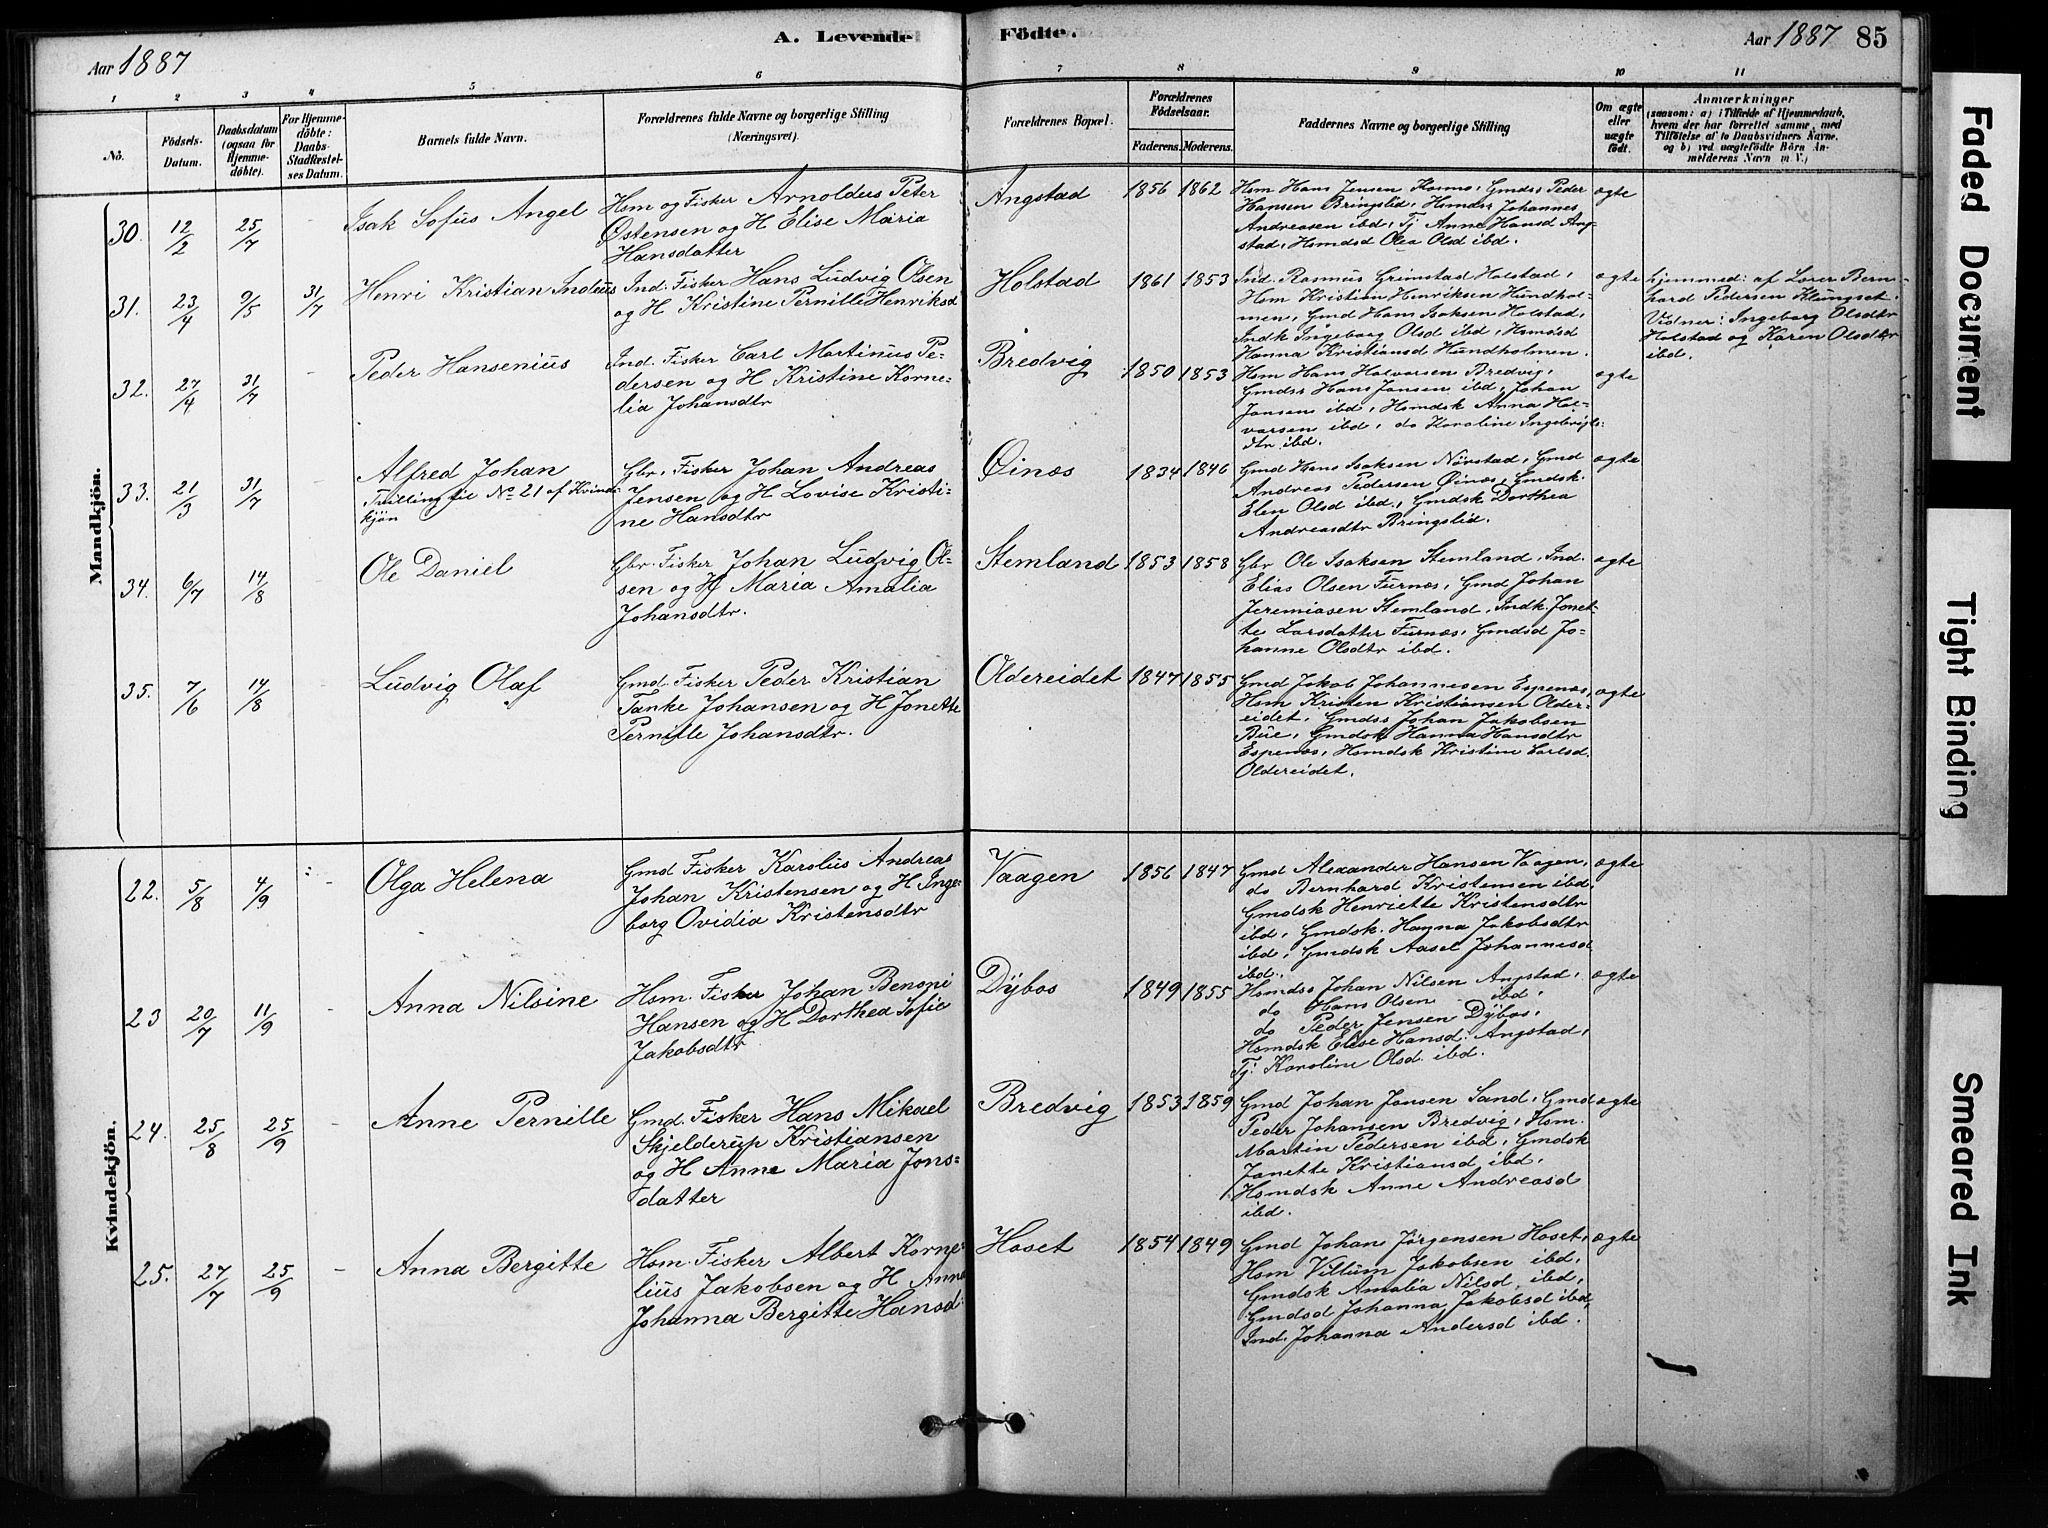 Aar 1887
A. Levende
Födte.
Aar 1887 85
1 2 3 4 5 6 7 8 9 10 11
No.
Födsels-
Datum.
Daabsdatum
(ogsaa for
Hjemme-
döbte).
For Hjemme-
döbte:
Daabs-
Stadfæstel-
ses Datum.
Barnets fulde Navn.
Forældrenes fulde Navne og borgerlige Stilling
(Næringsvei).
Forældrenes Bopæl.
Forældrenes
Födselsaar.
Faderens. Moderens.
Faddernes Navne og borgerlige Stilling
Om ægte
eller
uægte
födt.
Anmærkninger
(saasom: a) i Tilfælde af Hjemmedaab,
hvem der har forrettet samme, med
Tilföielse af to Daabsvidners Navne,
og b) ved uægtefödte Börn An-
melderens Navn m. V.)
Mandkjön.
30. 12/2 25/7 - Isak Sofus Angel
Hsm og Fisker Arnoldus Peter
Østensen og H Elise Maria
Hansdatter
Angstad 1856 1862
Hsm Hans Jensen Kosmo, Gmdss Peder
Hansen Bringslid, Hsmdss Johannes
Andreasen ibd, Tj Anne Hansd Ang-
stad, Hsmdsd Olea Olsd ibd.
ægte
31. 23/4 9/5 31/7 Henri Kristian Indeus
Ind. Fisker Hans Ludvig Olsen
og H Kristine Pernille Henriksd
Holstad 1861 1853
Ind. Rasmus Grimstad Holstad,
Hsm Kristian Henriksen Hundhol-
men, Gmd Hans Isaksen Holstad,
Indk Ingeborg Olsd ibd, Hsmdsd
Hanna Kristiansd Hundholmen.
ægte
hjemmed: af Lærer Bern-
hard Pedersen Klungset.
Vidner: Ingeborg Olsdtr
Holstad og Karen Olsdtr
ibd.
32. 27/4 31/7 - Peder Hansenius
Ind. Fisker Carl Martinus Pe-
dersen og H Kristine Korne-
lia Johansdtr
Bredvig 1850 1853
Hsm Hans Halvorsen Bredvig,
Gmdss Hans Jansen ibd, Johan
Jansen ibd, Hsmdsk Anna Hal-
vorsen ibd, do Karoline Ingebrigts-
dtr ibd.
ægte
33. 21/3 31/7 Alfred Johan
Tvilling til No 21 af Kvinde-
kjøn
Gbr. Fisker Johan Andreas
Jensen og H Lovise Kristi-
ne Hansdtr
Øinæs 1834 1846
Gmd Hans Isaksen Nørstad, Gmd
Andreas Pedersen Øinæs, Gmdsk
Elen Olsd ibd, Gmdsk Dorthea
Andreasdtr Bringslid.
ægte
34. 6/7 14/8 - Ole Daniel
Gbr. Fisker Johan Ludvig Ol-
sen og H Maria Amalia
Johansdtr.
Stemland 1853 1858
Gbr Ole Isaksen Stemland, Ind.
Elias Olsen Furnæs, Gmd Johan
Jeremiasen Stemland, Indk. Jonet-
te Larsdatter Furnæs, Gmdsd Jo-
hanne Olsdtr ibd.
ægte
35. 7/6 14/8 - Ludvig Olaf
Gmd. Fisker Peder Kristian
Tanke Johansen og H Jonette
Pernille Johansdtr.
Oldereidet 1847 1855
Gmd Jakob Johannesen Espenæs,
Hsm Kristen Kristiansen Older-
eidet, Gmdss Johan Jakobsen
Bue, Gmdsk Hanna Hansdtr
Espenæs, Hsmdsk Kristine Carlsd
Oldereidet.
ægte
Kvindekjön.
22. 5/8 4/9 - Olga Helena
Gmd Fisker Karolus Andreas
Johan Kristensen og H Inge-
borg Ovidia Kristensdtr
Vaagen 1856 1847
Gmd Alexander Hansen Vaagen,
do Bernhard Kristensen ibd,
Gmdsk Henriette Kristensdtr
ibd, Gmdsk. Hanna Jakobsdtr
ibd, Gmdsk Aasel Johannesd
ibd.
ægte
23 20/7 11/9 Anna Nilsine
Hsm. Fisker Johan Benoni
Hansen og H Dorthea Sofie
Jakobsdtr
Dybos 1849 1855
Hsmdss Johan Nilsen Angstad,
do Hans Olsen ibd,
do Peder Jensen Dybos,
Hsmdsk Elise Hansd. Angstad,
Tj. Karoline Olsd ibd.
ægte
24. 25/8 25/9 - Anne Pernille
Gmd. Fisker Hans Mikael
Skjelderup Kristiansen
og H Anne Maria Jons-
datter
Bredvig 1853 1859
Gmd Johan Jonsen Sand, Gmd
Peder Johansen Bredvig, Hsm.
Martin Pedersen ibd, Gmdsk
Janette Kristiansd ibd,
Hsmdsk Anne Andreasd
ibd.
ægte
25. 27/7 25/9 - Anna Bergitte
Hsm. Fisker Albert Korne-
lius Jakobsen og H Anna
Johanna Bergitte Hansd.
Hoset 1854 1849
Gmd Johan Jørgensen Hoset,
Hsm Villum Jakobsen ibd,
Gmdsk Amalia Nilsd. ibd,
Gmdsd Johanna Jakobsd ibd,
Ind. Johanna Andersd ibd.
ægte
Faded Document
Tight Binding
Smeared Ink